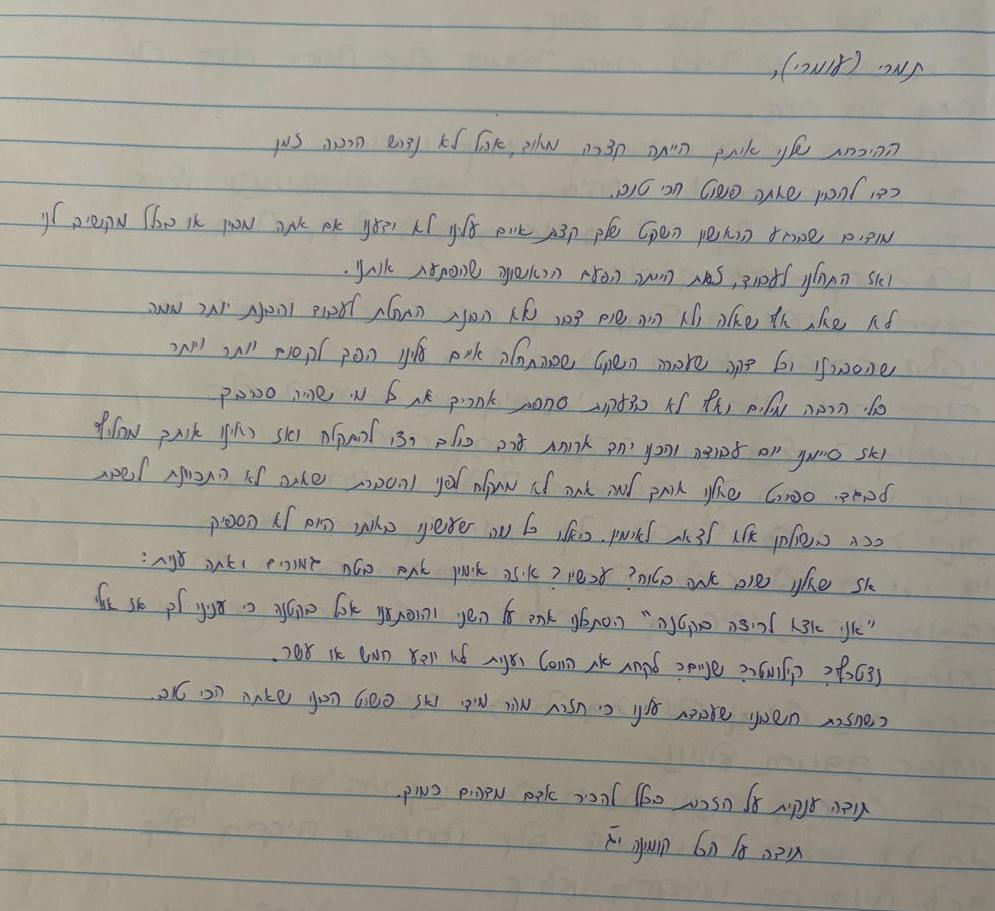 תמרי (עומרי),
ההיכרות שלנו אותך הייתה קצרה מאוד, אבל לא נדרש הרבה זמן
כדי להבין שאתה פשוט הכי טוב.
מודים שברגע הראשון השקט שלך קצת איים עלינו לא ידענו אם אתה מבין או בכלל מקשיב לנו
ואז התחלנו לעבוד, זאת הייתה הפעם הראשונה שהפתעת אותנו.
לא שאלת אף שאלה ולא היה שום דבר שלא הבנת התחלת לעבוד והבנת יותר ממה
שהסברנו וכל דקה שעברה השקט שבהתחלה איים עלינו הפך לקסום יותר ויותר
בלי הרבה מילים ואף לא בצעקות סחפת אחריך את כל מי שהיה סביבך.
ואז סיימנו יום עבודה והכנו יחד ארוחת ערב כולם רצו להתקלח ואז ראינו אותך מחליף
לבגדי ספורט שאלנו אותך למה אתה לא מתקלח לפני והסברת שאתה לא התכוונת לשבת
ככה בשולחן אלא לצאת לאימון. כאילו כל מה שעשינו באותו היום לא הספיק
אז שאלנו שוב אתה בטוח? עכשיו? איזה אימון אתם בטח גמורים ואתה ענית:
"אני אצא לריצה בקטנה" הסתכלנו אחד על השני והופתענו אבל בקטנה כי ענינו לך אז אולי
נצטרף? קילומטר? שניים? לקחת את הווסט וענית לא יודע חמש או עשר.
כשחזרת חשבנו שעבדת עלינו כי חזרת מהר מידי ואז פשוט הבנו שאתה הכי טוב.
תודה ענקית על הזכות בכלל להכיר אדם מדהים כמוך.
תודה על הכל קומונה יג